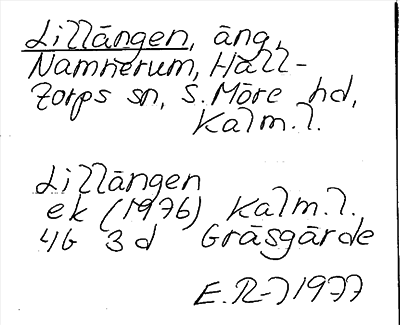 Lillängen, äng,
Namnerum, Hall-
torps sn, S. Möre hd,
Kalm. l.
Lillängen
ek (1976) Kalm. l.
4G 3d Gräsgärde
E.R-71977